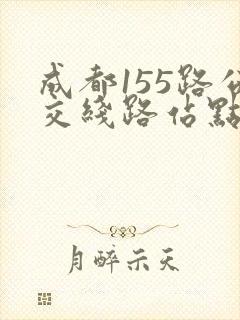 成都155路公
交綫路佔點
月醉示天